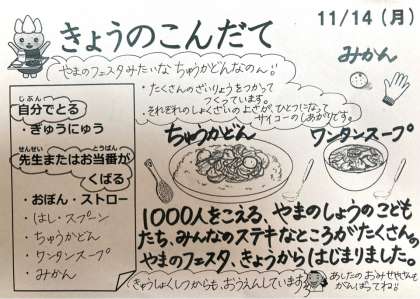 きょうのこんだて
11/14（月）
みかん
やまのフェスタみたいな ちゅうかどんなのん!!
・たくさんのざいりょうをつかって
つくっています。
・それぞれのしょくざいのよさが、ひとつになって
サイコーのしあがりです。
じぶん
自分でとる
・ぎゅうにゅう
せんせい とうばん
先生またはお当番が
くばる
・おぼん・ストロー
・はし・スプーン
・ちゅうかどん
・ワンタンスープ
・みかん
ちゅうかどん
ワンタンスープ
1000人をこえる、やまのしょうのこども
たち、みんなのステキなところがたくさん。
やまのフェスタ、きょうからはじまりました。
きゅうしょくしつからも、おうえんしています
あしたのおみせやさん
がんばってね!!